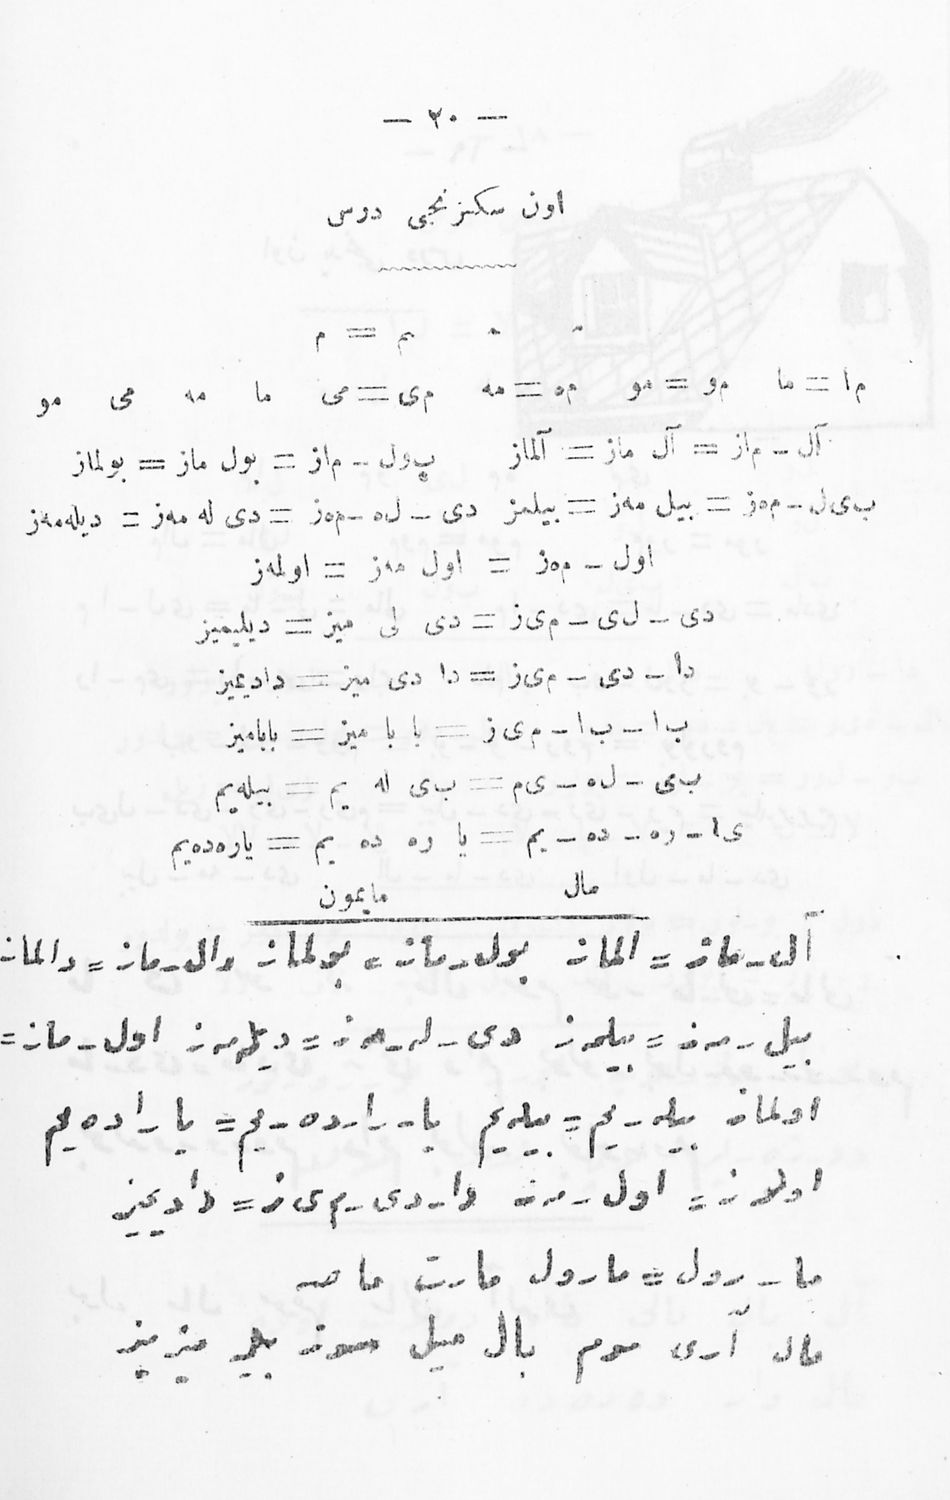 — ٢٠ —
اون سكزنجى درس
م = م
م‌ا = ما م‌و = مو م‌ه = مه م‌ى = مى ما مه مى مو
آل ـ م‌از = آل ماز = آلماز ب‌ول ـ م‌از = بول ماز = بولماز
ب‌ى‌ل ـ م‌ه‌ز = بيل مه‌ز = بيلمز دى ـ ل‌ه ـ م‌ه‌ز = دى له مه‌ز = ديله‌مه‌ز
اول ـ م‌ه‌ز = اول مه‌ز = اولمه‌ز
دى ـ ل‌ى ـ م‌ى‌ز = دى لى ميز = ديليميز
دا ـ دى ـ م‌ى‌ز = دا دى ميز = داديميز
ب‌ا ـ ب‌ا ـ م‌ى‌ز = با با ميز = باباميز
ب‌ى ـ ل‌ه ـ ى‌م = ب‌ى له يم = بيله‌يم
ى‌ا ـ ره ـ ده ـ يم = يا ره ده يم = ياره‌ده‌يم
مال مايمون
آل ـ ماز = آلماز بول ـ ماز = بولماز دال ـ ماز = دالماز
بيل ـ مز = بيلمز دى ـ له ـ مز = ديله‌مز اول ـ ماز =
اولماز بيله ـ يم = بيله‌يم يا ـ را ـ ده ـ يم = يا راده‌يم
اولمز = اول ـ مز دا ـ دى ـ م‌ى‌ز = داديميز
ما ـ رول = مارول مارت ماصه
مال آرى موم بال ميل سوز